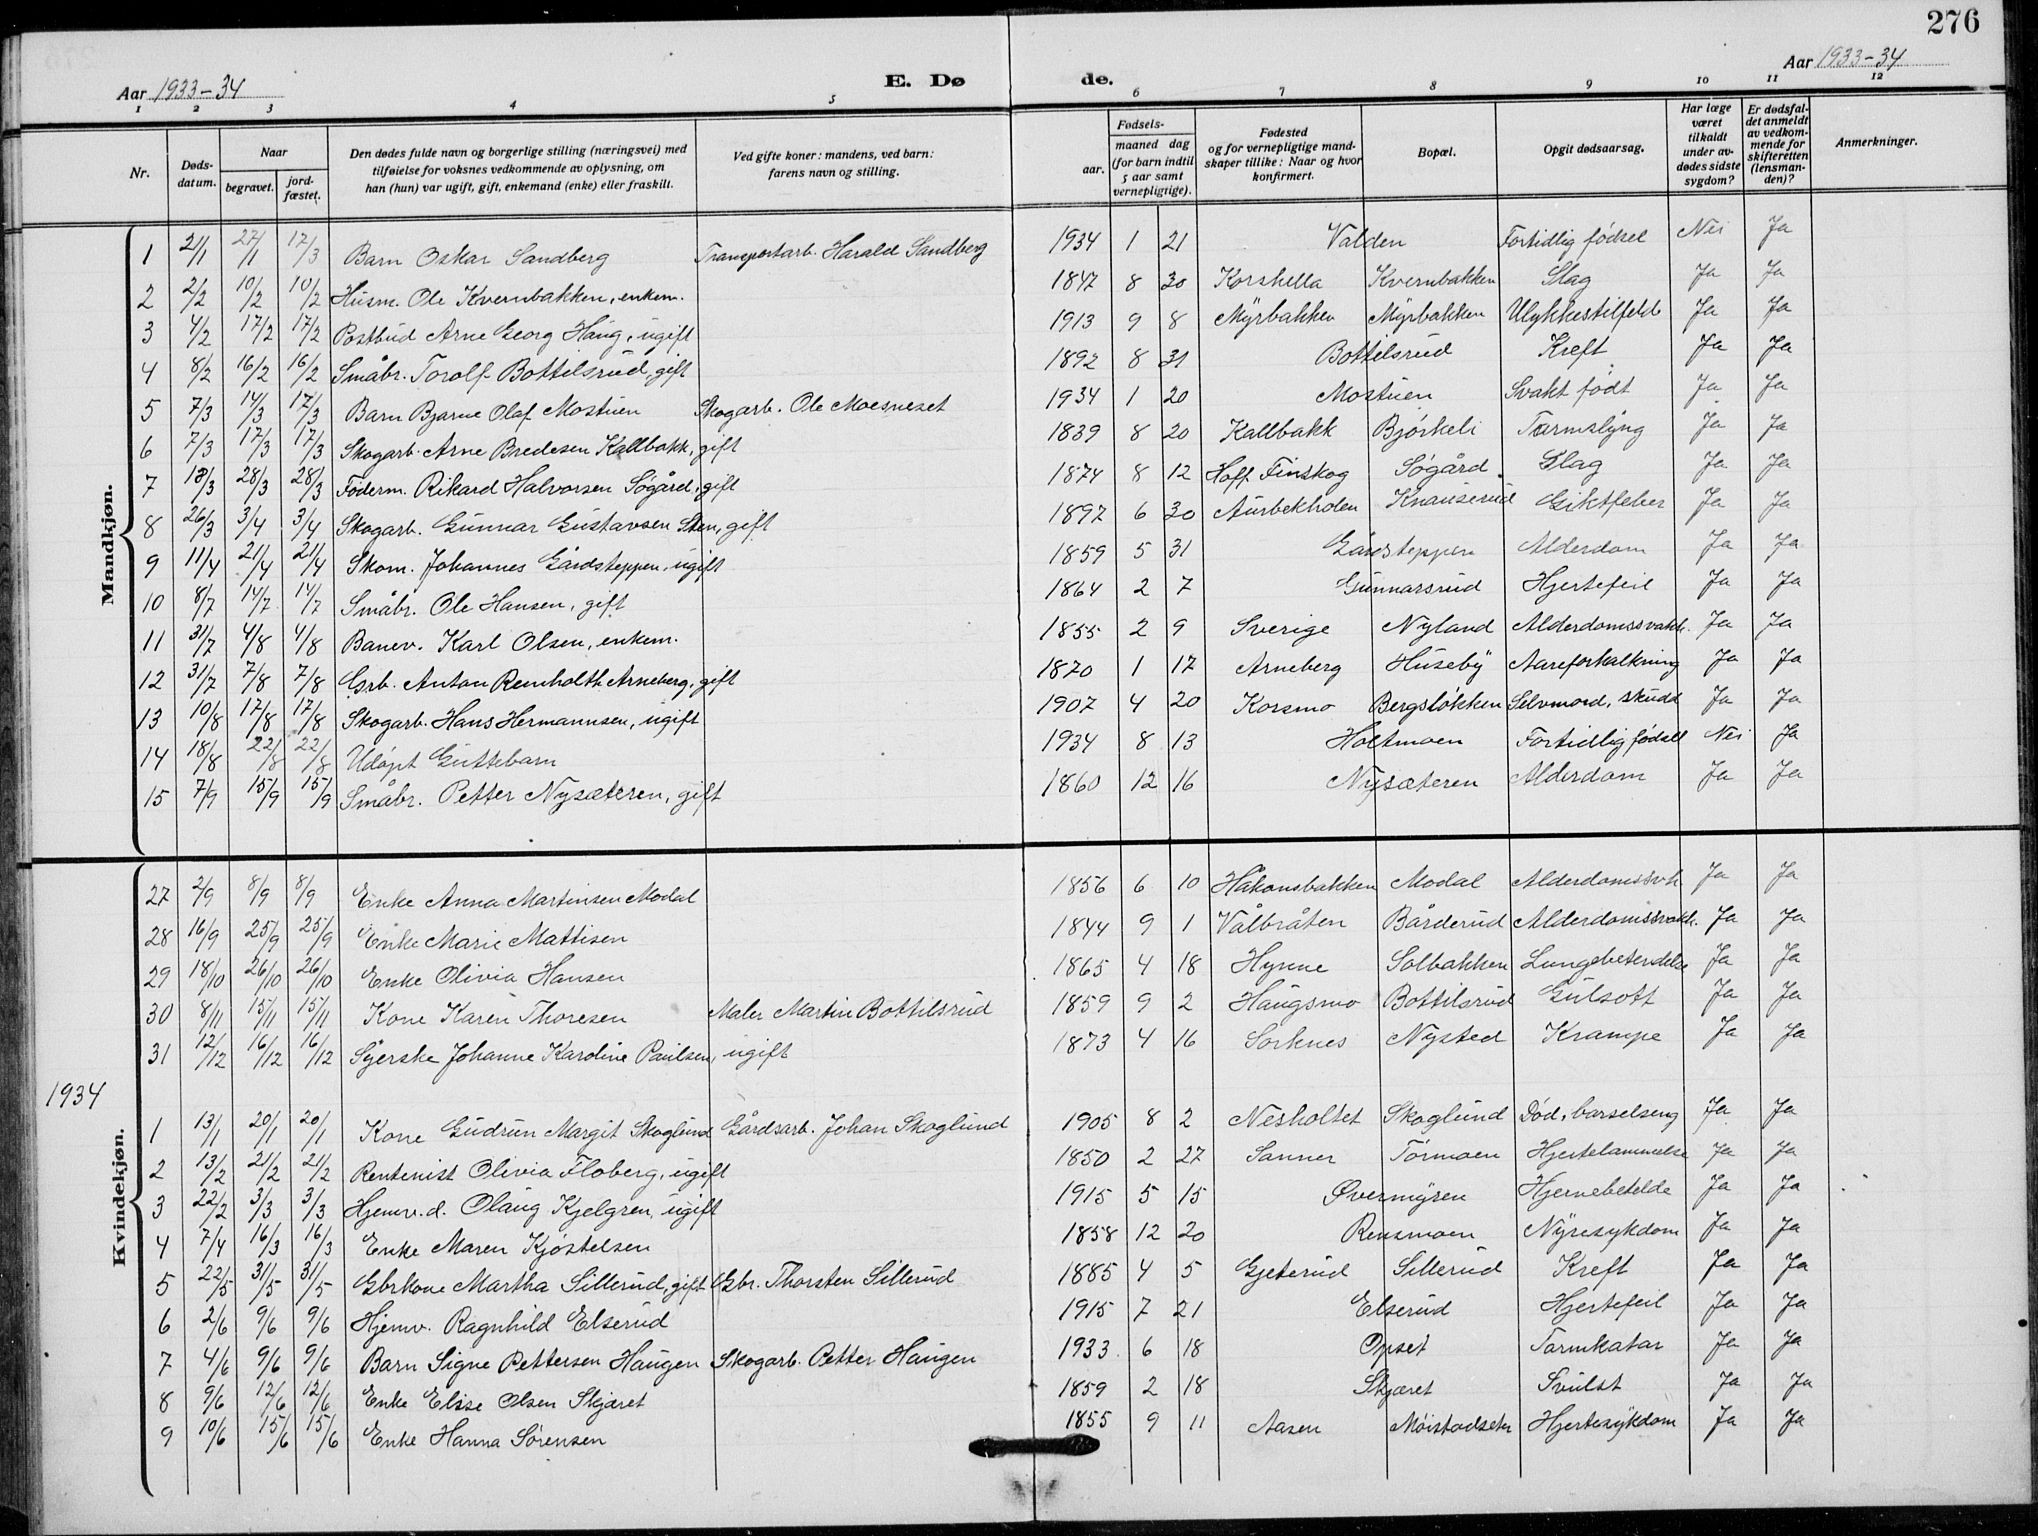 276
Aar 1933-34 E. Dø de. Aar 1933-34
1 2 3 4 5 6 7 8 9 10 11 12
Nr. Døds-datum. Naar begravet. jord-fæstet. Den dødes fulde navn og borgerlige stilling (næringsvei) med tilføielse for voksnes vedkommende av oplysning, om han (hun) var ugift, gift, enkemand (enke) eller fraskilt. Ved gifte koner: mandens, ved barn: farens navn og stilling. Fødsels- aar. maaned dag (for barn indtil 5 aar samt vernepligtige). Fødested og for vernepligtige mand-skaper tillike: Naar og hvor konfirmert. Bopæl. Opgit dødsaarsag. Har læge været tilkaldt under av-dødes sidste sygdom? Er dødsfal-det anmeldt av vedkom-mende for skifteretten (lensman-den)? Anmerkninger.
Mandkjøn.
1 21/1 27/1 17/3 Barn Oskar Sandberg Transportarb. Harald Sandberg 1934 1 21 Valden Fortidlig fødsel Nei Ja
2 2/2 10/2 10/2 Husm. Ole Kvernbakken, enkem. 1847 8 30 Korshella Kvernbakken Slag Ja Ja
3 4/2 17/2 17/2 Postbud Arne Georg Haug, ugift 1913 9 8 Myrbakken Myrbakken Ulykkestilfeld Ja Ja
4 8/2 16/2 16/2 Småbr. Torolf Bottilsrud, gift 1892 8 31 Bottilsrud Kreft Ja Ja
5 7/3 14/3 17/3 Barn Bjarne Olaf Mostuen Skogarb. Ole Moesneset 1934 1 20 Mostuen Svakt født Ja Ja
6 7/3 17/3 17/3 Skogarb. Arne Bredesen Kallbakk, gift 1839 8 20 Kallbakk Bjørkeli Tarmslyng Ja Ja
7 18/3 28/3 28/3 Føderm. Rikard Halvorsen Søgård, gift 1874 8 12 Hoff Finskog Søgård Slag Ja Ja
8 26/3 3/4 3/4 Skogarb. Gunnar Gustavsen Sten, gift 1897 6 30 Aurbekholen Knauserud Giktfeber Ja Ja
9 11/4 21/4 21/4 Skom. Johannes Gårdsteppen, ugift 1859 5 31 Gårdsteppen Alderdom Ja Ja
10 8/7 14/7 14/7 Småbr. Ole Hansen, gift 1864 2 7 Gunnarsrud Hjertefeil Ja Ja
11 31/7 4/8 4/8 Banev. Karl Olsen, enkem. 1855 2 9 Sverige Nyland Alderdomssvakh. Ja Ja
12 31/7 7/8 7/8 Grb. Anton Reinholth Arneberg, gift 1870 1 17 Arneberg Huseby Aareforkalkning Ja Ja
13 10/8 17/8 17/8 Skogarb. Hans Hermannsen, ugift 1907 4 20 Korsmo Bergsløkken Selvmord, skudd Ja Ja
14 18/8 22/8 22/8 Udøpt Guttebarn 1934 8 13 Holtmoen Fortidlig fødsel Nei Ja
15 7/9 15/9 15/9 Småbr. Petter Nysæteren, gift 1860 12 16 Nysæteren Alderdom Ja Ja
27 2/9 8/9 8/9 Enke Anna Martinsen Modal 1856 6 10 Håkonsbakken Modal Alderdomssvh Ja Ja
28 16/9 25/9 25/9 Enke Marie Mattisen 1844 9 1 Vålbråten Bårderud Alderdomssvakh. Ja Ja
29 18/10 26/10 26/10 Enke Olivia Hansen 1865 4 18 Hynne Solbakken Lungebetendelse Ja Ja
30 8/11 15/11 15/11 Kone Karen Thoresen Maler Martin Bottilsrud 1859 9 2 Haugsmo Bottilsrud Gulsott Ja Ja
31 12/12 16/12 16/12 Syerske Johanne Karoline Paulsen, ugift 1873 4 16 Sorknes Nysted Krampe Ja Ja
1934
Kvindekjøn.
1 13/1 20/1 20/1 Kone Gudrun Margit Skoglund Gårdsarb. Johan Skoglund 1905 8 2 Nesholtet Skoglund Død, barselseng Ja Ja
2 13/2 21/2 21/2 Rentenist Olivia Floberg, ugift 1850 2 27 Sanner Tørmoen Hjertelammelse Ja Ja
3 22/2 3/3 3/3 Hjemv. d. Olaug Kjelgren, ugift 1915 5 15 Øvermyren Hjernebetelde Ja Ja
4 7/4 16/3 16/3 Enke Maren Kjøstelsen 1858 12 20 Rensmoen Nyresykdom Ja Ja
5 22/5 31/5 31/5 Gbrkone Martha Sillerud, gift Gbr. Thorsten Sillerud 1885 4 5 Gjeterud Sillerud Kreft Ja Ja
6 2/6 9/6 9/6 Hjemv. Ragnhild Elserud 1915 7 21 Elserud Hjertefeil Ja Ja
7 4/6 9/6 9/6 Barn Signe Pettersen Haugen Skogarb. Petter Haugen 1933 6 18 Opset Tarmkatar Ja Ja
8 9/6 12/6 12/6 Enke Elise Olsen Skjæret 1859 2 18 Skjæret Svulst Ja Ja
9 10/6 15/6 15/6 Enke Hanna Sørensen 1855 9 11 Aasen Møistadseter Hjertesykdom Ja Ja